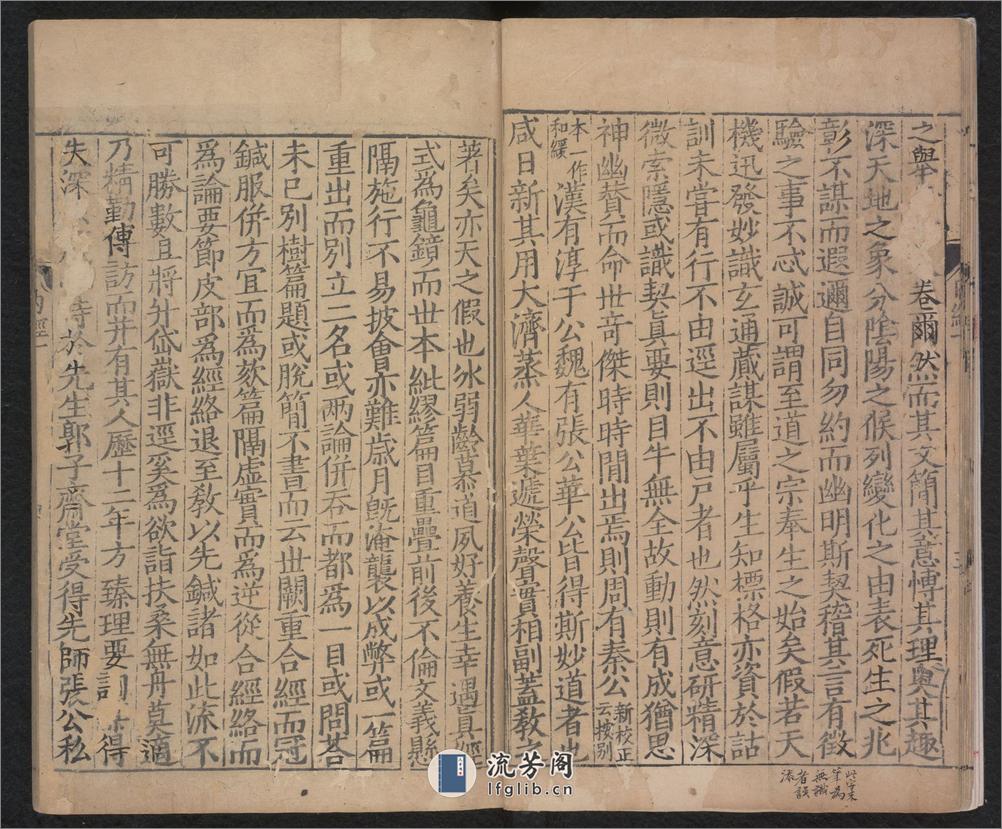 之舉 卷爾然而其文簡其意愽其理奧其趣
深天地之象分陰陽之候列變化之由表死生之兆
彰不謀而遐邇自同勿約而幽明斯契稽其言有徵
驗之事不忒誠可謂至道之宗奉生之始矣假若天
機迅發妙識玄通蕆謀雖屬乎生知標格亦資於詁
訓未嘗有行不由逕出不由戶者也然刻意研精深
微索隱或識契真要則目牛無全故動則有成猶思
神幽賛而命世竒傑時時間出焉則周有秦公新校正云按別
本一作和緩漢有淳于公魏有張公華公皆得斯妙道者也
咸日新其用大濟蒸人華葉遞榮聲實相副蓋教之
著矣亦天之假也冰弱齡慕道夙好養生幸遇真經
式爲龜鏡而世本紕繆篇目重疊前後不倫文義懸
隔施行不易披會亦難歲月旣淹襲以成弊或一篇
重出而別立二名或两論併吞而都爲一目或問荅
未已別樹篇題或脫簡不書而云世闕重合經而冠
鍼服併方宜而爲欬篇隔虛實而爲逆從合經絡而
爲論要節皮部爲經絡退至教以先鍼諸如此流不
可勝數且將升岱嶽非逕奚爲欲詣扶桑無舟莫適
乃精勤傳訪而并有其人歷十二年方臻理要 得
失深 時於先生郭子齋堂受得先師張公秘
内經
此字未
筆爲
無識
者誤
添
流芳阁
lfglib.cn